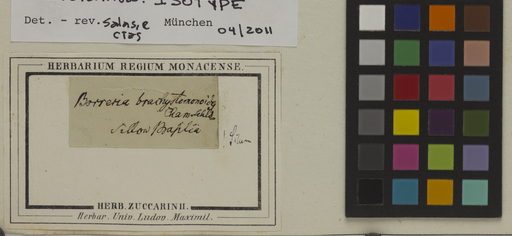 ISOTYPE
Det. - rev. Salas, e München
C7as 04/2011
HERBARIUM REGIUM MONACENSE.
Borreria brachystemonoides
Cham Schld
Sellow Brasilia
HERB. ZUCCARINII.
Herbar. Univ. Ludov. Maximil.